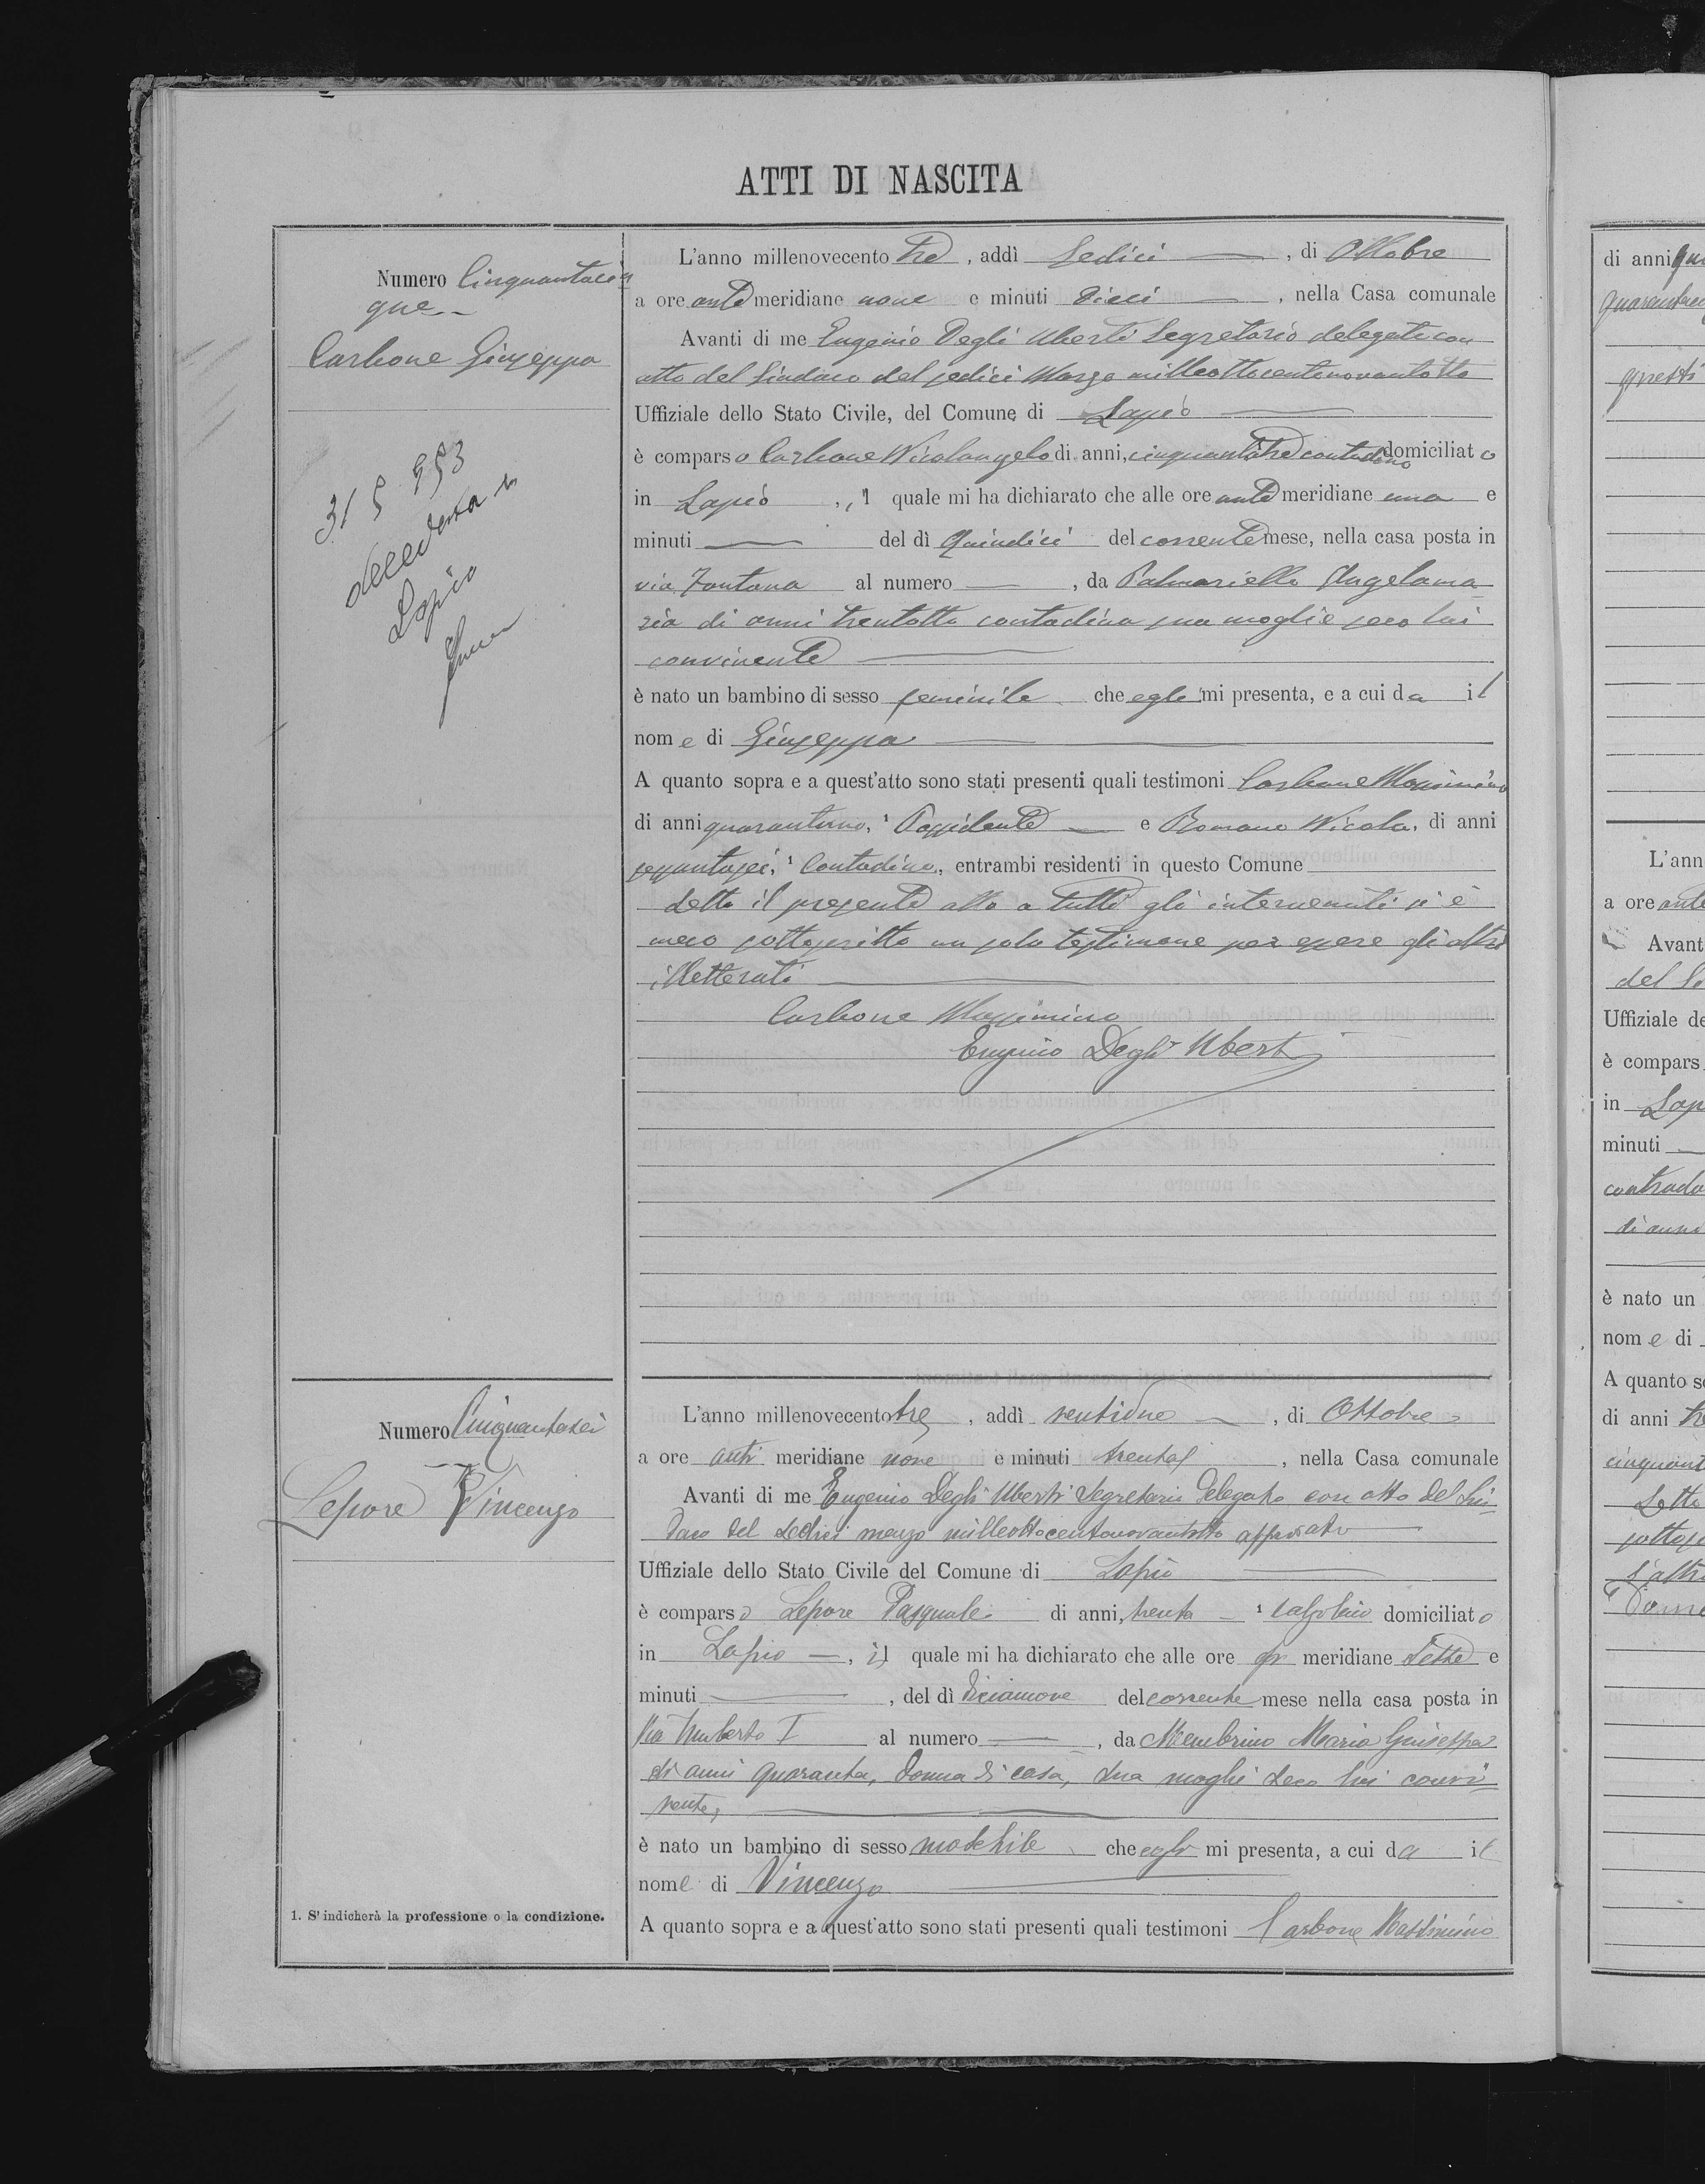 ATTI DI NASCITA
Numero Cinquantacin
que
Carbone Giuseppa
31 5 953
deceduta in
Lapio
L'anno millenovecento tre, addì Sedici, di Ottobre
a ore ante meridiane nove e minuti dieci, nella Casa comunale
Avanti di me Eugenio Degli Uberti Segretario delegato con
atto del Sindaco del sedici Marzo milleottocentonovantotto
Uffiziale dello Stato Civile, del Comune di Lapio
è comparso Carbone Nicolangelo di anni, cinquantatre contadino domiciliato
in Lapio, il quale mi ha dichiarato che alle ore ante meridiane una e
minuti del dì Quindici del corrente mese, nella casa posta in
via Fontana al numero, da Palmariello Angelama
ria di anni trentotto contadina sua moglie seco lui
convivente
è nato un bambino di sesso feminile che egli mi presenta, e a cui da il
nome di Giuseppa
A quanto sopra e a quest'atto sono stati presenti quali testimoni Carbone Massimino
di anni quarantuno, ¹ Possidente e Romano Nicola, di anni
sessantasei, ¹ Contadino, entrambi residenti in questo Comune
Letto il presente atto a tutti gli intervenuti si è
meco sottoscritto un solo testimone per essere gli altri
illetterati
Carbone Massimino
Eugenio Degli Uberti
Numero Cinquantasei
Lepore Vincenzo
L'anno millenovecentotre, addì ventidue, di Ottobre
a ore anti meridiane nove e minuti trenta, nella Casa comunale
Avanti di me Eugenio Degli Uberti Segretario Delegato con atto del Sin-
daco del Sedici marzo milleottocentonovantotto approvato
Uffiziale dello Stato Civile del Comune di Lapio
è comparso Lepore Pasquale di anni, trenta ¹ calzolaio domiciliato
in Lapio, il quale mi ha dichiarato che alle ore meridiane Sette e
minuti, del dì diciannove del corrente mese nella casa posta in
Via Umberto I al numero, da Membrino Maria Giuseppa
di anni quaranta, donna di casa, sua moglie seco lui convi-
vente,
è nato un bambino di sesso maschile che egli mi presenta, a cui da il
nome di Vincenzo
A quanto sopra e a quest'atto sono stati presenti quali testimoni Carbone Massimino
1. S'indicherà la professione o la condizione.
di anni
questi
L'ann
a ore ante
Avant
del Si
Uffiziale de
è compars
in Lap
minuti
contrada
di anni
è nato un
nome di
A quanto s
di anni tre
cinquant
Letto